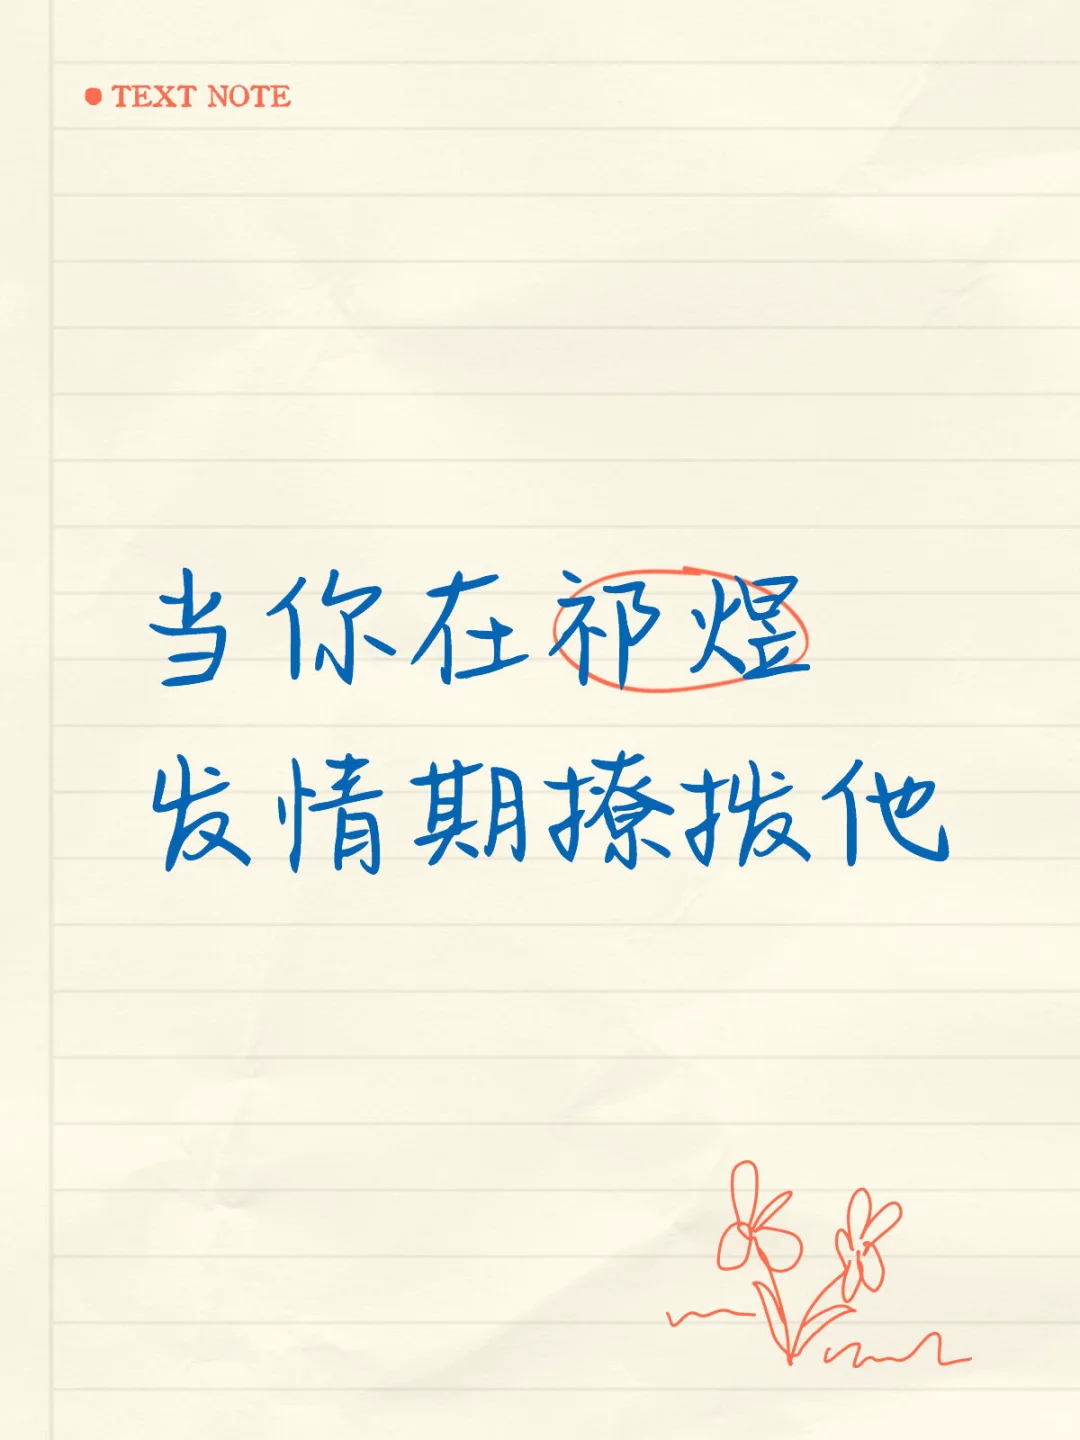 TEXT NOTE
当你在祁煜
发情期撩拨他